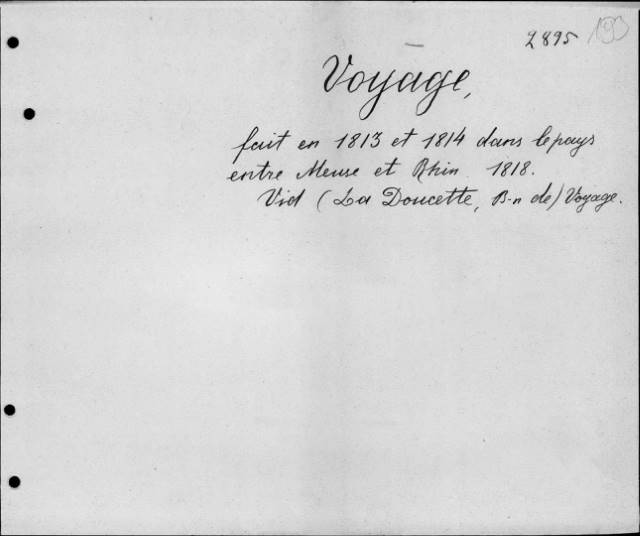 2895 193
Voyage,
fait en 1813 et 1814 dans le pays
entre Meuse et Rhin 1818.
Vid (La Doucette, B-n de) Voyage.